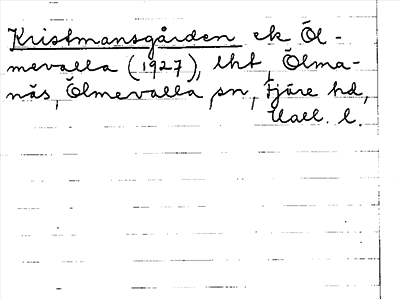 Kristmansgården ek Öl-
mevalla (1927), lht, Ölma-
näs, Ölmevalla sn, Fjäre hd,
Hall. l.